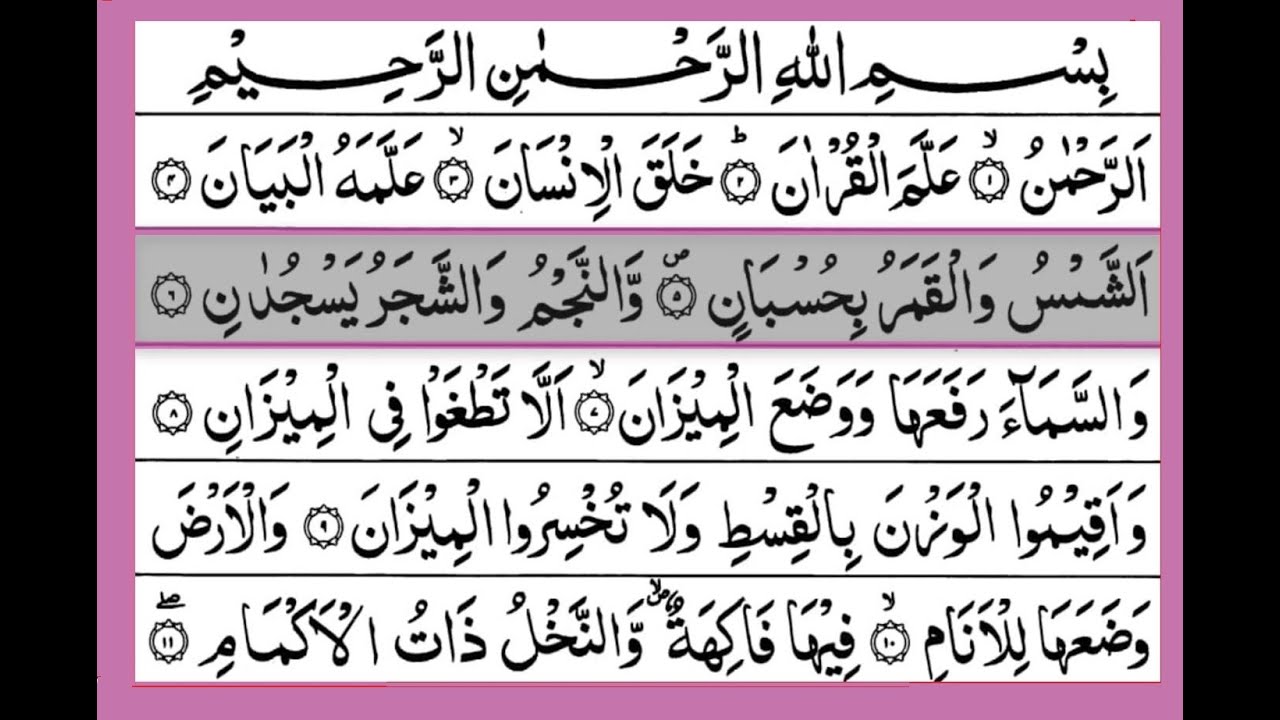 بِسْمِ اللهِ الرَّحْمٰنِ الرَّحِيْمِ
اَلرَّحْمٰنُ ۙ﴿۱﴾ عَلَّمَ الْقُرْاٰنَ ؕ﴿۲﴾ خَلَقَ الْاِنْسَانَ ۙ﴿۳﴾ عَلَّمَهُ الْبَيَانَ ﴿۴﴾
اَلشَّمْسُ وَالْقَمَرُ بِحُسْبَانٍ ۪﴿۵﴾ وَّالنَّجْمُ وَالشَّجَرُ يَسْجُدٰنِ ﴿۶﴾
وَالسَّمَآءَ رَفَعَهَا وَوَضَعَ الْمِيْزَانَ ۙ﴿۷﴾ اَلَّا تَطْغَوْا فِى الْمِيْزَانِ ﴿۸﴾
وَاَقِيْمُوا الْوَزْنَ بِالْقِسْطِ وَلَا تُخْسِرُوا الْمِيْزَانَ ﴿۹﴾ وَالْاَرْضَ
وَضَعَهَا لِلْاَنَامِ ۙ﴿۱۰﴾ فِيْهَا فَاكِهَةٌ ۪ۙ وَّالنَّخْلُ ذَاتُ الْاَكْمَامِ ۖ﴿۱۱﴾